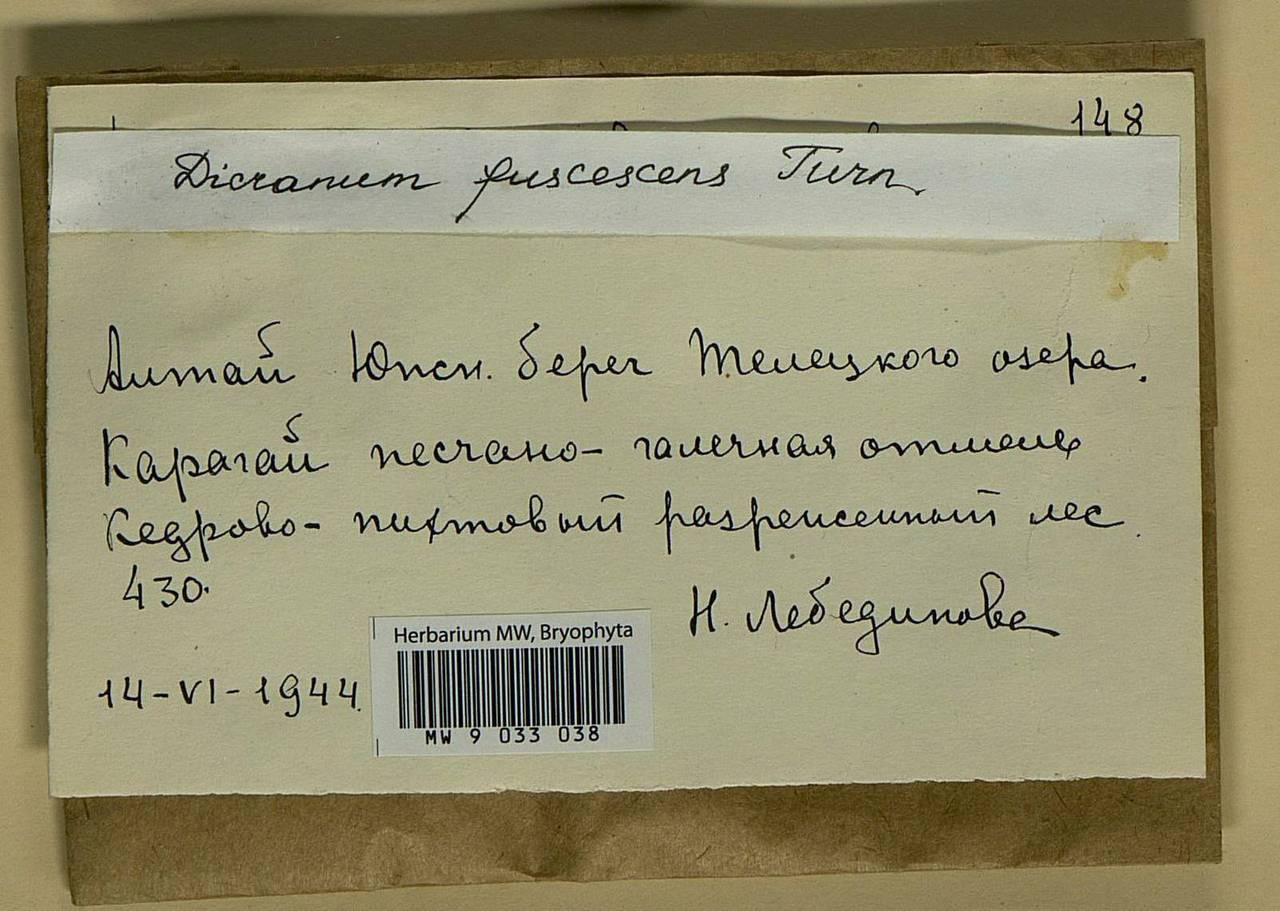 148
Dicranum fuscescens Turn.
Алтай Южн. берег Телецкого озера.
Карагай песчано- галечная отмель
Кедрово- пихтовый разреженный лес.
430.
Н. Лебединова
14-VI-1944.
Herbarium MW, Bryophyta
MW 9 033 038